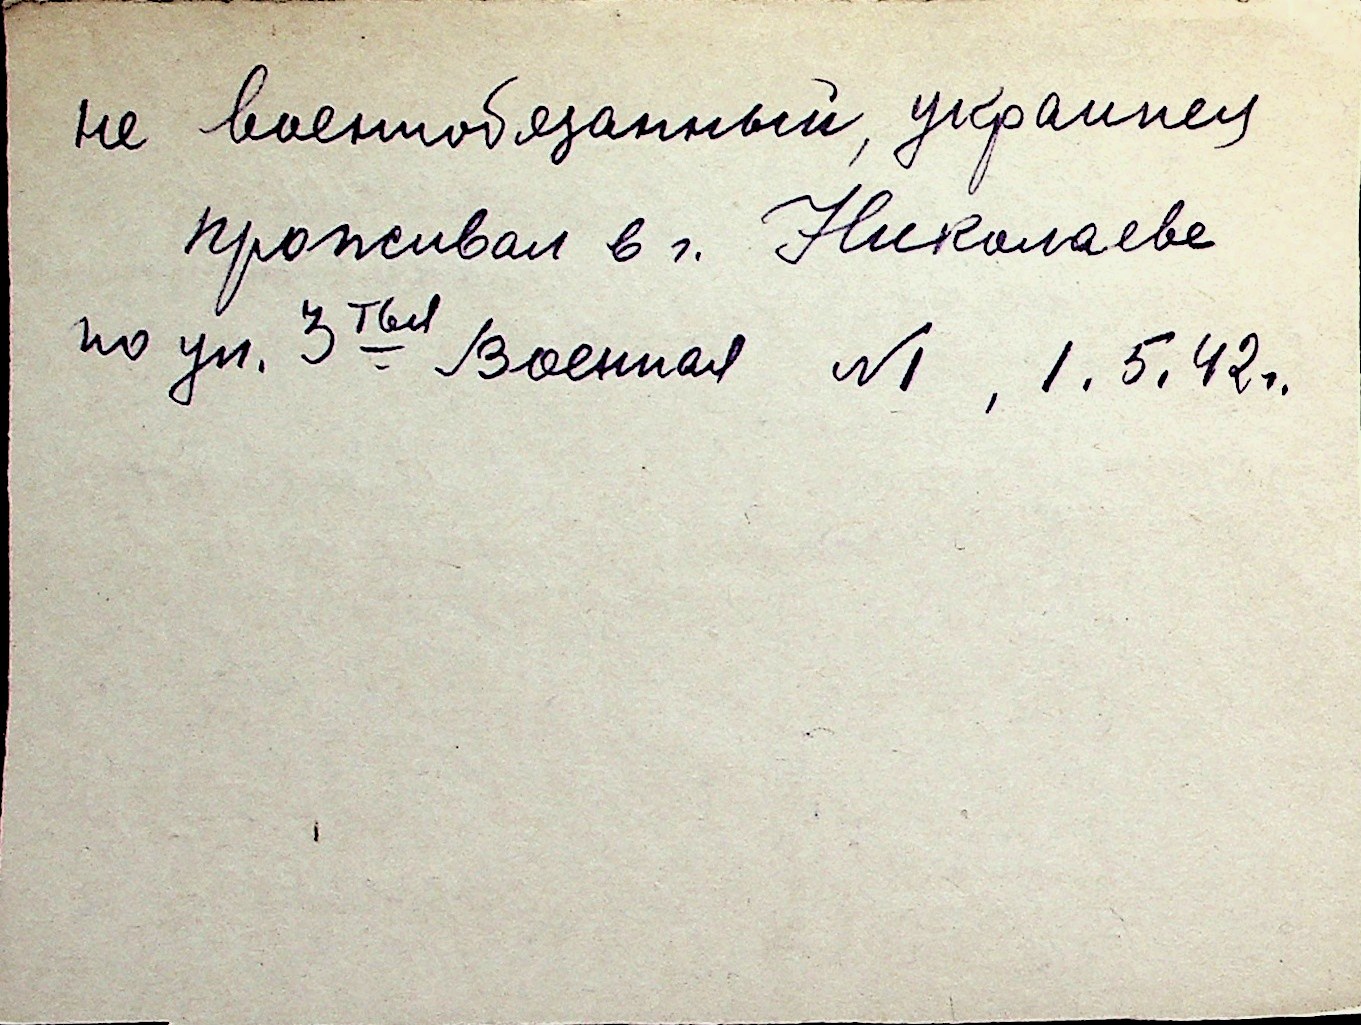 не военнобязанный, украинец
проживал в г. Николаеве
по ул. 3тья Военная №1, 1.5.42г.